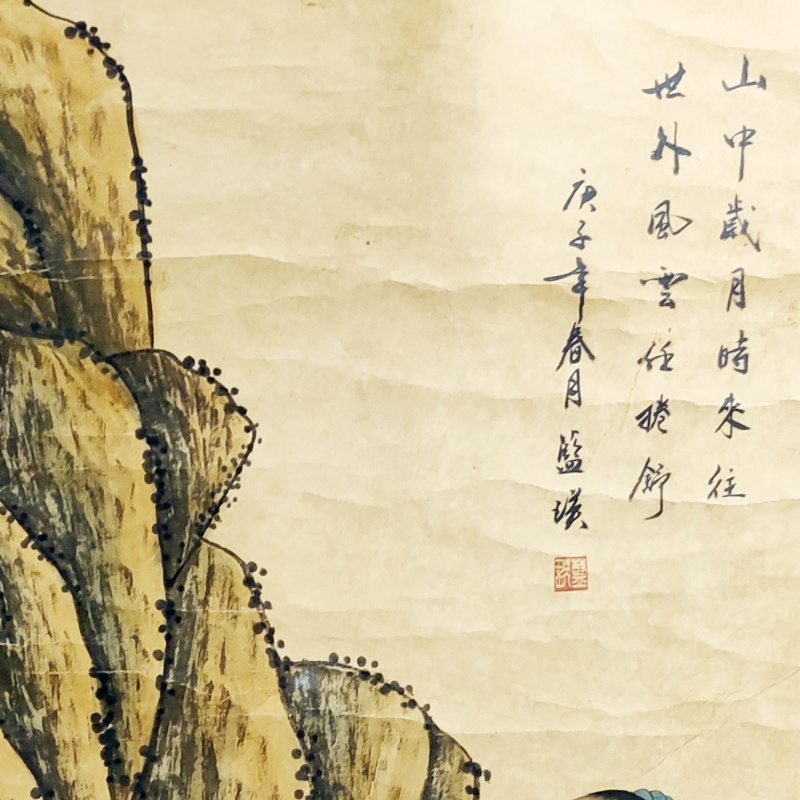 山中歲月時來往
世外風雲任捲舒
庚子年春月 藍瑛